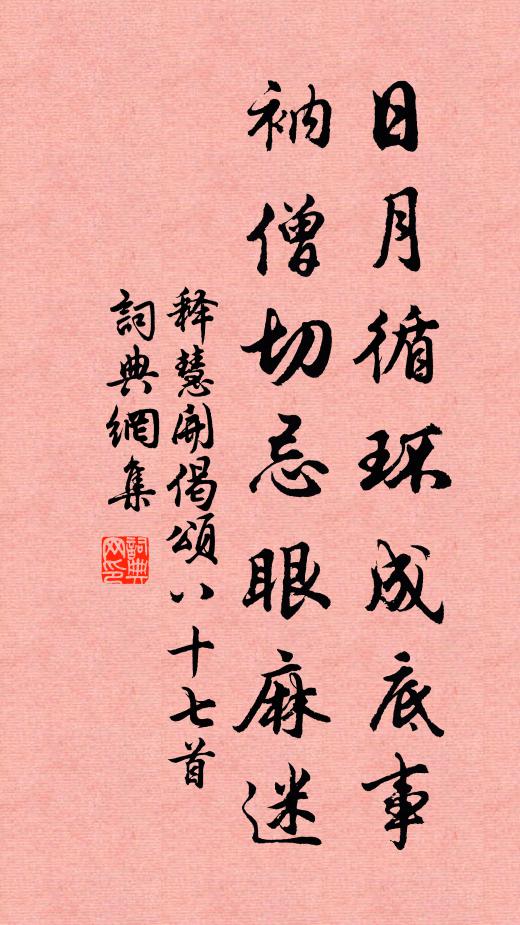 日月循环成底事
衲僧切忌眼麻迷
释慧開偈頌八十七首
詞典網集
詞典网印